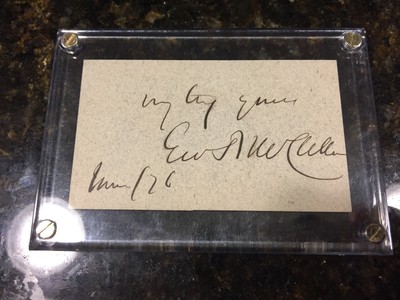 very truly yours
Geo B McClellan
/76